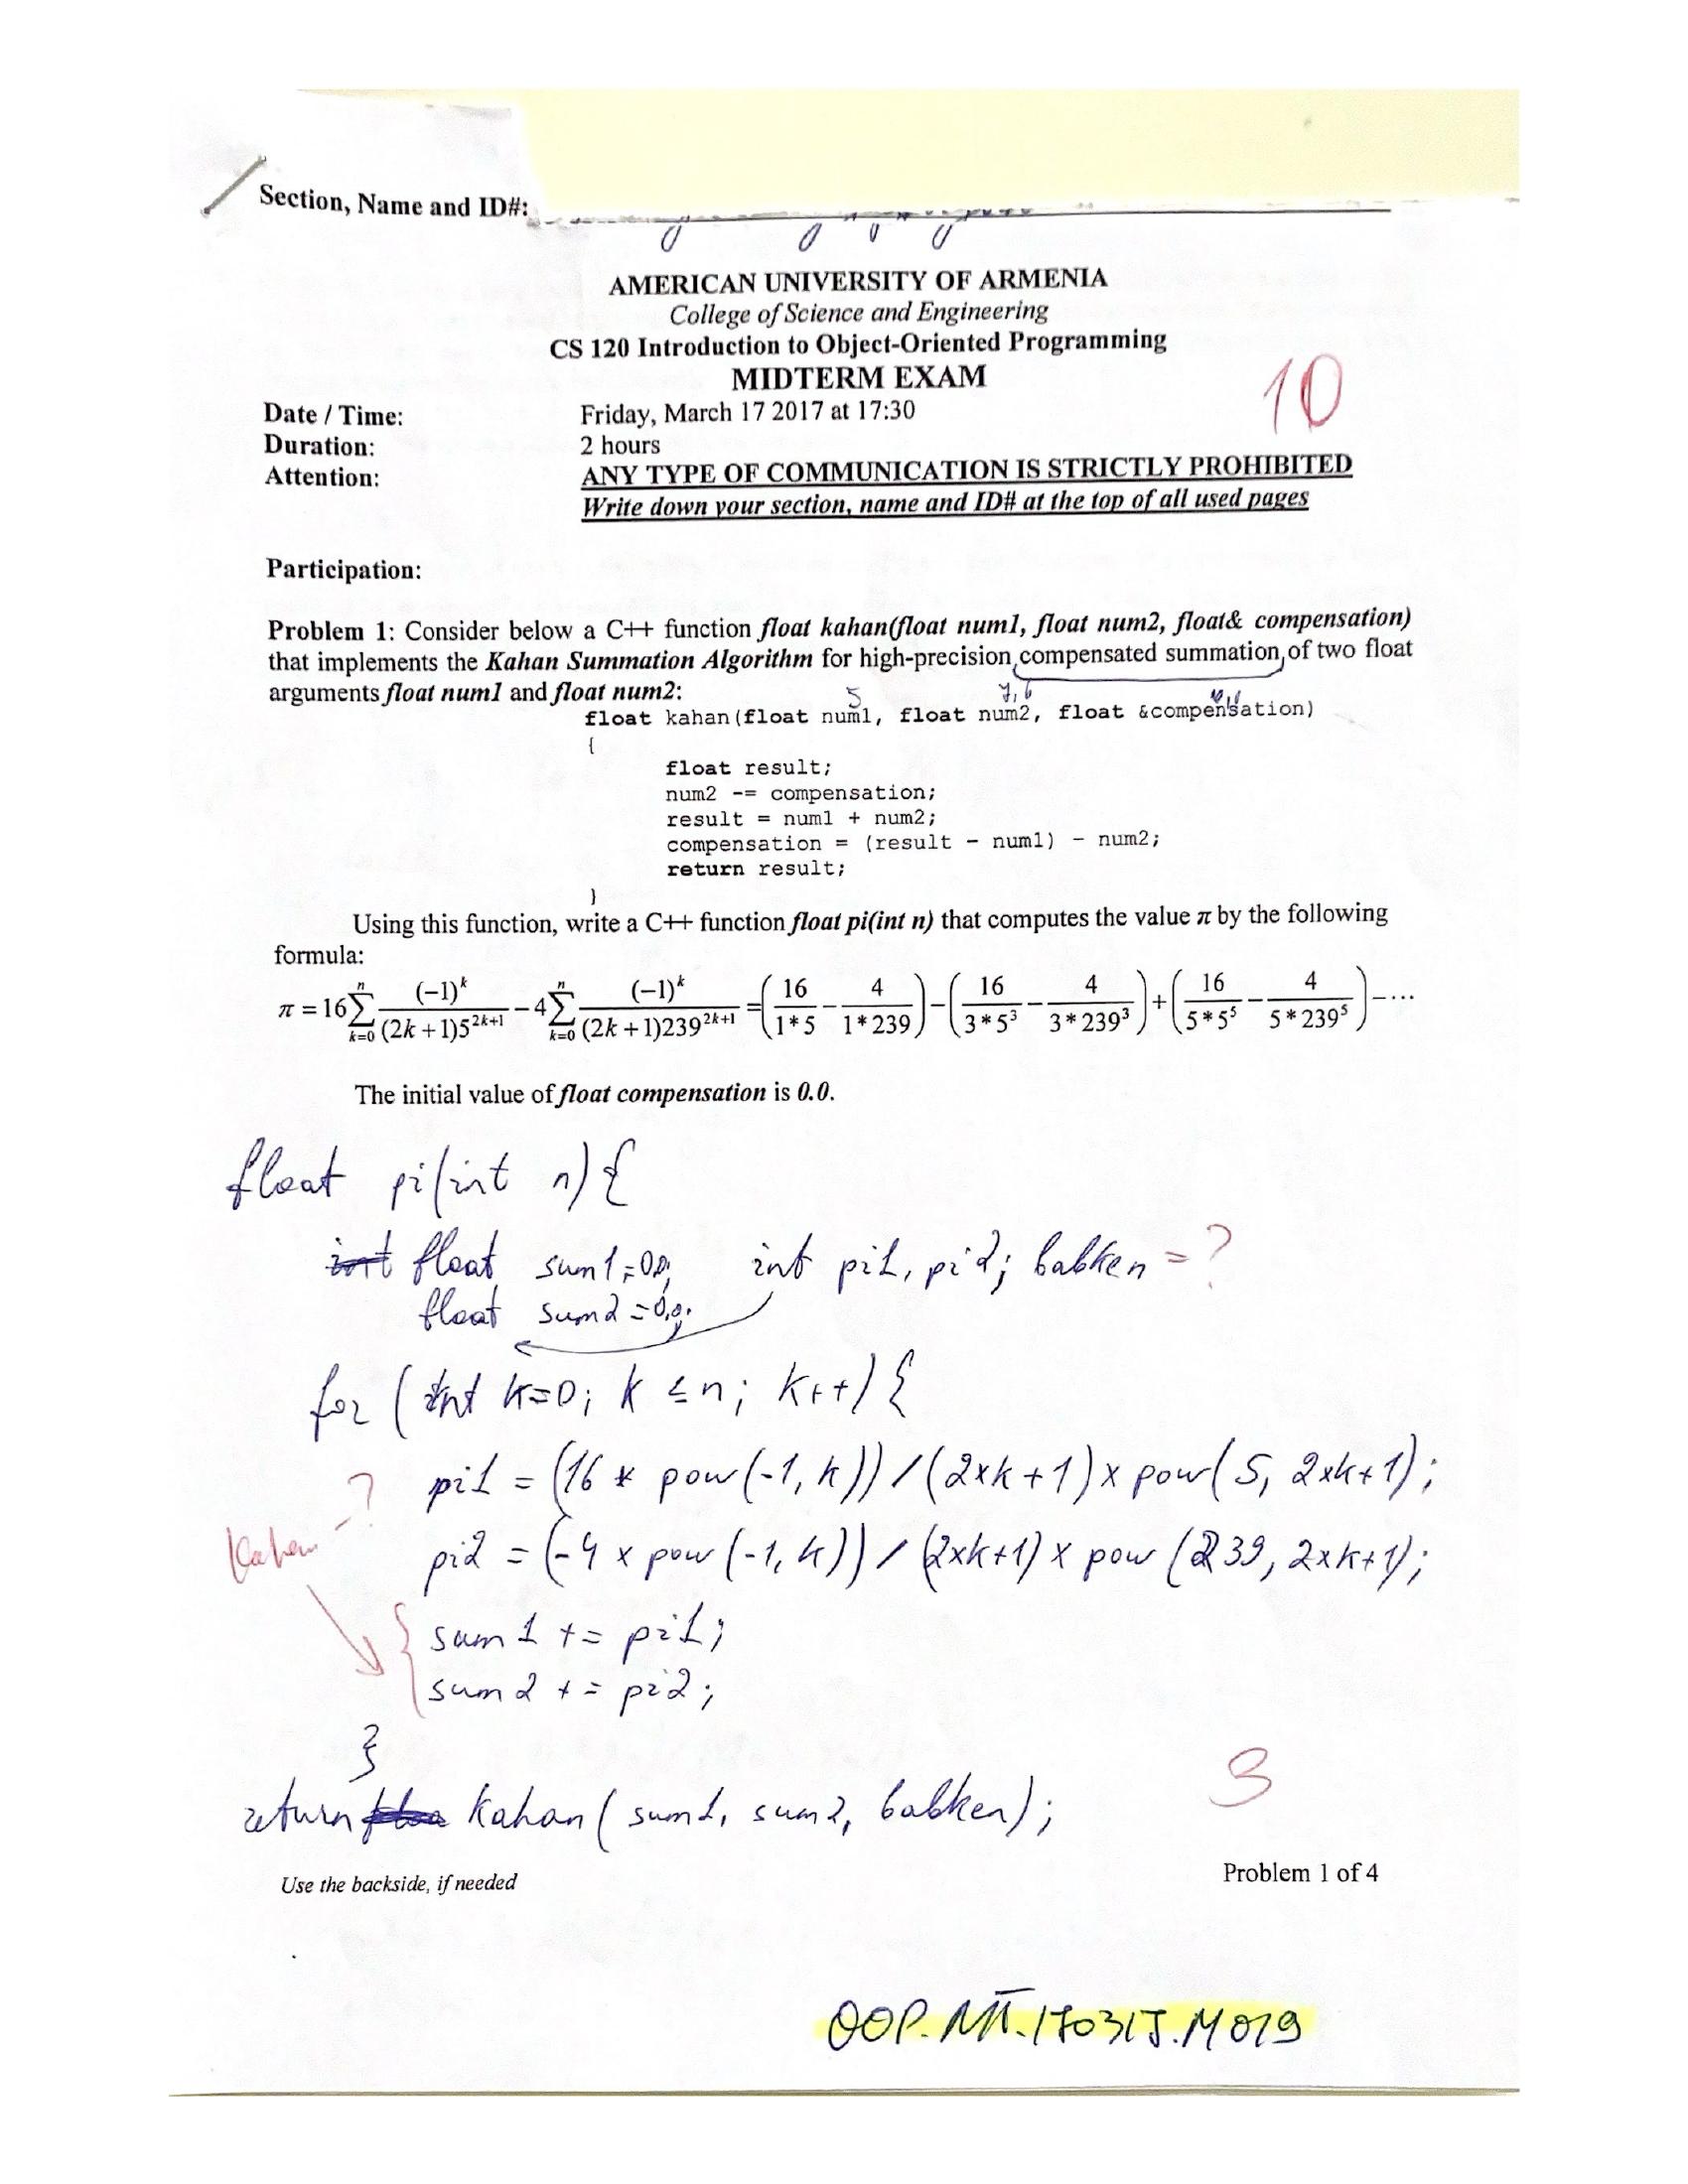 Section, Name and ID#:
AMERICAN UNIVERSITY OF ARMENIA
College of Science and Engineering
CS 120 Introduction to Object-Oriented Programming
MIDTERM EXAM
10
Date / Time: Friday, March 17 2017 at 17:30
Duration: 2 hours
Attention: ANY TYPE OF COMMUNICATION IS STRICTLY PROHIBITED
Write down your section, name and ID# at the top of all used pages
Participation:
Problem 1: Consider below a C++ function float kahan(float num1, float num2, float& compensation)
that implements the Kahan Summation Algorithm for high-precision compensated summation of two float
arguments float num1 and float num2:
5 7,6
float kahan(float num1, float num2, float &compensation)
{
float result;
num2 -= compensation;
result = num1 + num2;
compensation = (result - num1) - num2;
return result;
}
Using this function, write a C++ function float pi(int n) that computes the value π by the following
formula:
π = 16 ∑_{k=0}^{n} (-1)^k / ((2k+1)5^{2k+1}) - 4 ∑_{k=0}^{n} (-1)^k / ((2k+1)239^{2k+1}) = (16/(1*5) - 4/(1*239)) - (16/(3*5^3) - 4/(3*239^3)) + (16/(5*5^5) - 4/(5*239^5)) - ...
The initial value of float compensation is 0.0.
float pi(int n) {
int float sum1=0.0; int pi1, pi2; babken = ?
float sum2=0.0;
for (int k=0; k ≤ n; k++) {
? pi1 = (16 * pow(-1, k)) / (2xk+1) x pow(5, 2xk+1);
Kahan pi2 = (-4 x pow(-1, k)) / (2xk+1) x pow(239, 2xk+1);
sum1 += pi1;
sum2 += pi2;
}
3
return kahan(sum1, sum2, babken);
Use the backside, if needed Problem 1 of 4
OOP.MT.170317.M019